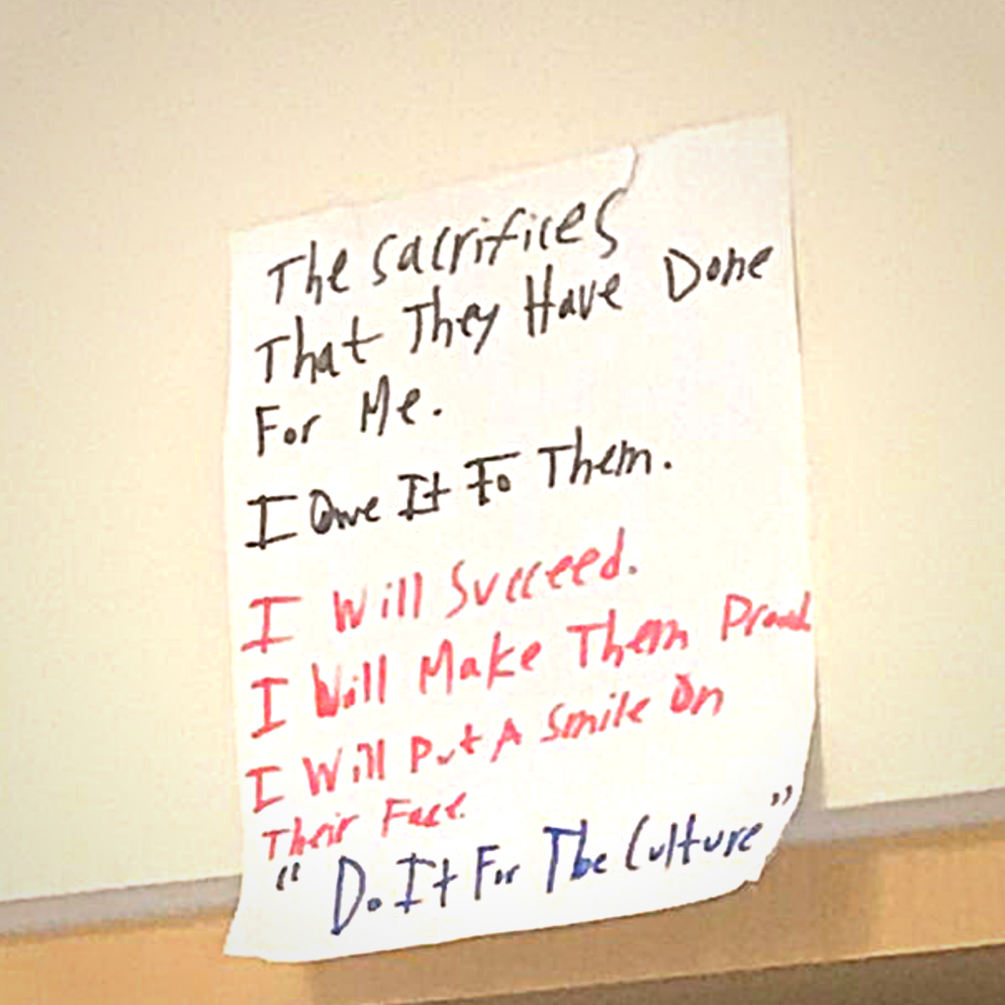 The Sacrifices
That They Have Done
For Me.
I Owe It To Them.
I Will Succeed.
I Will Make Them Proud
I Will Put A Smile On
Their Face.
“ Do It For The Culture ”